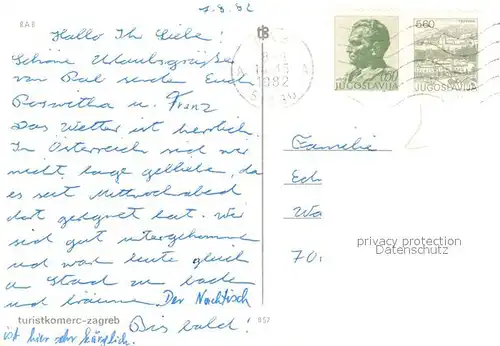 RAB
1.8.82
Hallo Ihr Liebe!
Schöne Urlaubsgrüße
von Rab senden Euch
Roswitha u. Franz
Das Wetter ist herrlich.
In Österreich sind wir
nicht lange geblieben, da
es seit Mittwochabend
dort geregnet hat. Wir
sind gut untergekommen
und waren heute gleich
am Strand zu baden
und bräunen. Der Nachtisch
ist hier sehr kärglich.
Bis bald!
turistkomerc-zagreb
857
1982
1,60
JUGOSLAVIJA
5.60
JUGOSLAVIJA
2
Familie
Ech
Wa
70
privacy protection
Datenschutz